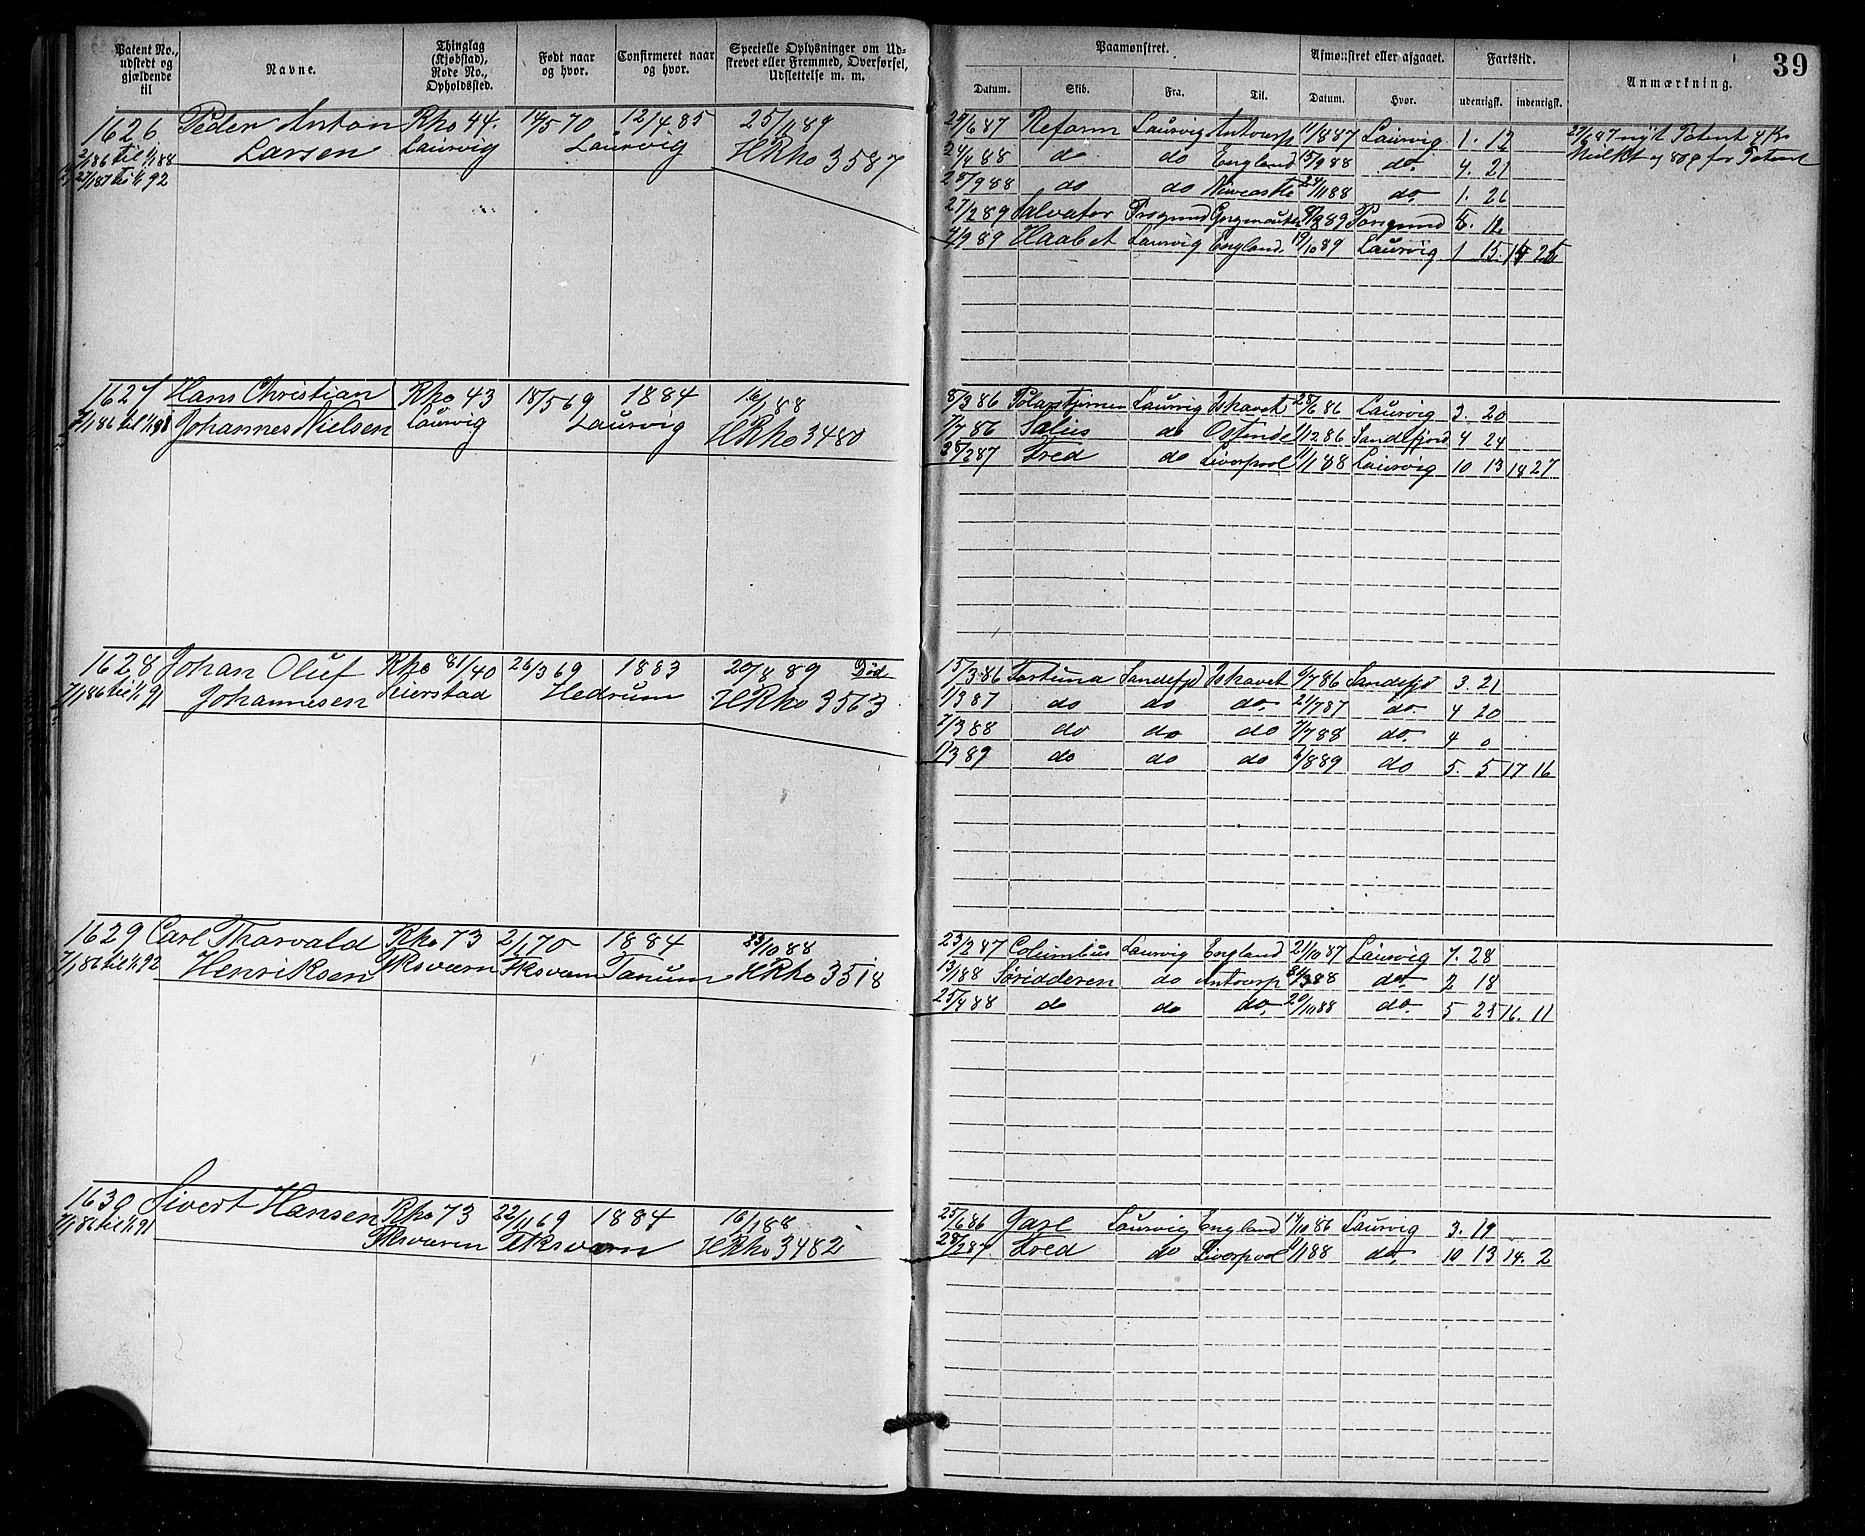 39
Patent No., udstedt og gjældende til
Navne.
Thinglag (Kjøbstad), Rode No., Opholdssted.
Født naar og hvor.
Confirmeret naar og hvor.
Specielle Oplysninger om Udskrevet eller Fremmed, Overførsel, Udslettelse m. m.
Paamønstret.
Afmønstret eller afgaaet.
Fartstid.
Anmærkning.
Datum. Skib. Fra. Til. Datum. Hvor. udenrigsk. indenrigsk.
1626 Peder Anton Rho 44. 14/5 70 12/4 85 25/11 89
2/1 86 til 1/1 88 Larsen Laurvig Laurvig HRho 3587
27/1 87 til 1/1 92
29/6 87 Reform Laurvig Antwerp 11/8 87 Laurvig 1. 12
nyt Patent 4 Kr
24/4 88 do do England 15/9 88 do. 4. 21
Mulkt og 80 ø for Patent
28/9 88 do do Newcastle 24/11 88 do. 1. 26
27/2 89 Salvator Prsgrund 89 Porsgrund 5. 12
7/9 89 Haabet Laurvig England. 19/10 89 Laurvig 1 15.
1627 Hans Christian Rho 43 18/5 69 1884 16/1 88
7/1 86 til 1/1 91 Johannes Nielsen Laurvig Laurvig HRho 3480
8/3 86 Polarstjernen Laurvig Ishavet 28/6 86 Laurvig 3. 20
7/7 86 Salus do Ostende 1/12 86 Sandefjord 4 24
28/2 87 Fred do Liverpool 11/1 88 Laurvig 10 13 18 27
1628 Johan Oluf Rho 81/40 26/3 69 1883 20/8 89 Død
7/1 86 til 1/1 91 Johannesen Hedrum HRho 3563
15/3 86 Fortuna Sandefjd Ishavet 6/7 86 Sandefjd 3. 21
1/3 87 do do do. 21/7 87 do. 4 20
7/3 88 do do do 7/7 88 do. 4 0
1/3 89 do do do 6/8 89 do 5. 5 17 16
1629 Carl Thorvald Rho 73 2/1 70 1884 23/10 88
7/1 86 til 1/1 92 Henriksen Fksværn Fksværn Tanum HRho 3518
23/2 87 Columbus Laurvig England 21/10 87 Laurvig 7. 28
13/1 88 Søridderen do Antwerp 31/3 88 do. 2 18
25/4 88 do do do. 20/10 88 do. 5 25 16. 11
1630 Sivert Hansen Rho 73 22/11 69 1884 16/1 88
7/1 86 til 1/1 91 Fksværn Fksværn HRho 3482
25/6 86 Jarl Laurvig England 14/10 86 Laurvig 3. 19
28/2 87 Fred do Liverpool 11/1 88 do. 10 13 14. 2